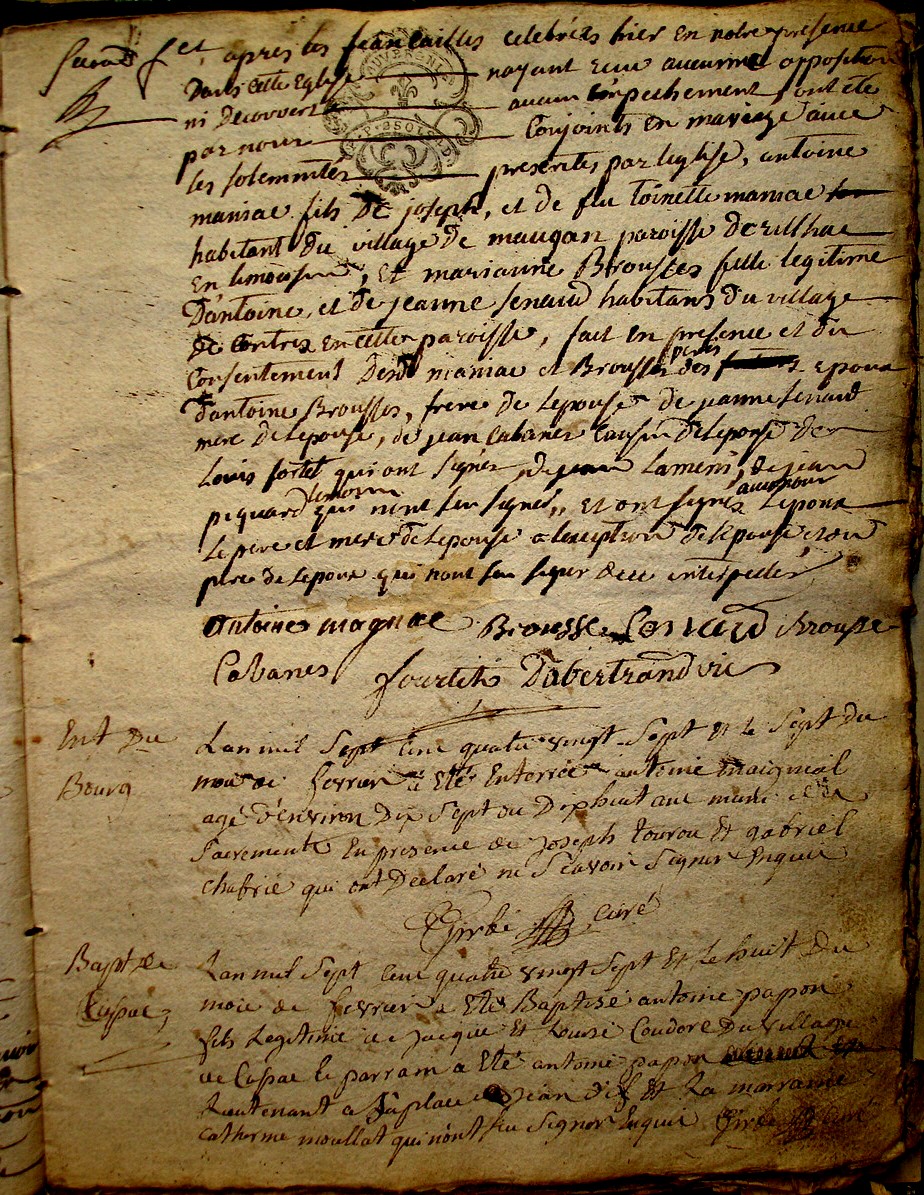 et apres les fiancailles celebrées hier en notre presence
Dans cette Eglise nayant eeu aucune opposition
ni Decouvert aucun empechement, ont été
par nous Conjoints en mariage avec
les solemnités prescrites par leglise, antoine
maniac fils De joseph, et de feu toinette maniac
habitant du village De maugan paroisse de rilhac
En limousin, et marianne Brousses fille legitime
Dantoine, et de jeanne senaud habitans du village
De Contres en cette paroisse, fait en presence et du
Consentement Desd maniac et Brousses peres des epoux
d'antoine Brousses, frere de Lepouse de jeanne senaud
mere de Lepouse, de jean Cabanes Cousin de Lepouse de
Louis fortet qui ont signés, de jean Lameri, de jean
pequard qui n'ont seu signer, et ont signés Lepoux
Le pere et mere de Lepouse a lexception de Lepouse et du
pere de Lepoux qui nont seu signer de ce interpellés
antoine magnac Brousse Senaud Brousse
Cabanes fourtet Dabertrand vic
Ent Du
Bourg
Lan mil Sept Cent quatre vingt Sept Et le Sept du
mois de fevrier a Eté Enterré antoine
agé d'environ Dix Sept ou Dix huit ans muni des
Sacrements En presence de Joseph tourou Et gabriel
chabrié qui ont Declaré ne Scavoir Signer Enquis
Girbé curé
Bapt de
Cuspac
Lan mil Sept Cent quatre vingt Sept Et le huit Du
mois de fevrier a Eté Baptisé antoine papon
fils Legitime de Jacque Et Louise Coudore Du village
de Cuspac le parrain a Eté antoine papon
Lieutenant a Saplace Jean Et La marraine
Catherine moullat qui n'ont seu Signer Enquis Girbé curé